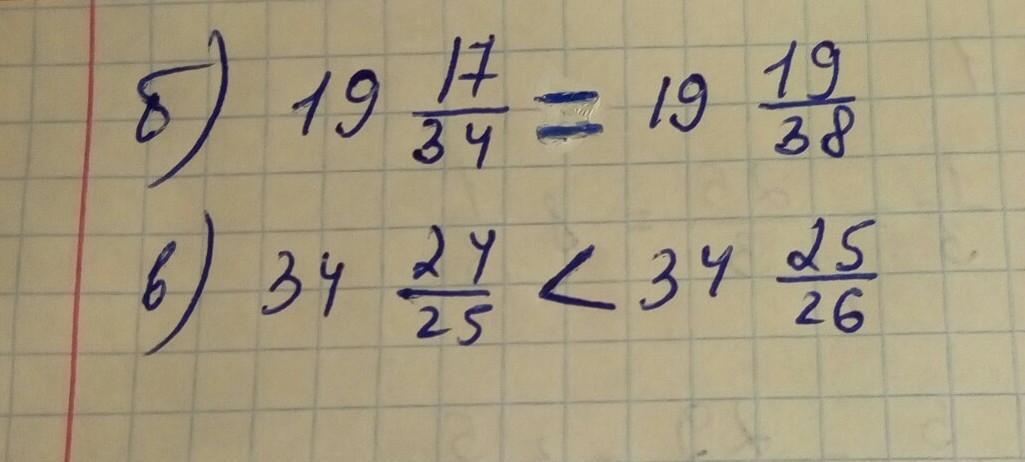 б) 19 17/34 = 19 19/38
в) 34 24/25 < 34 25/26